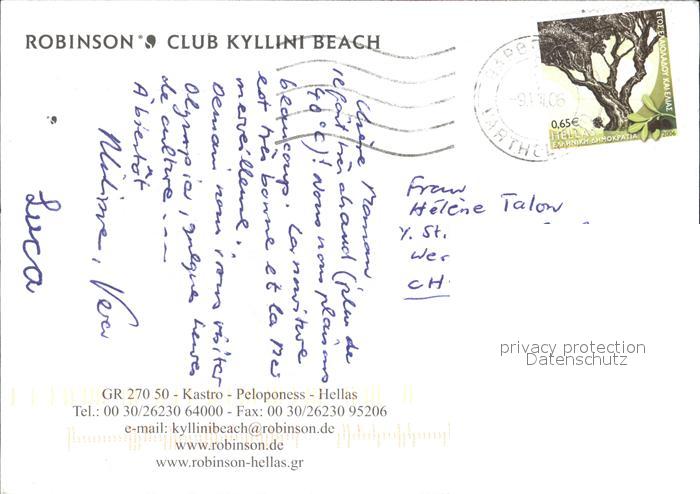 ROBINSON CLUB KYLLINI BEACH
Chère Maman
il fait très chaud (plus de
40°C)! Nous nous plaisons
beaucoup. La nourriture
est très bonne et la mer
merveilleuse.
Demain nous irons visiter
Olympia, quelques heures
de culture...
À bientôt
Vera
Luca
Frau
Hélène Talon
Y. St.
CH
0.65€
ΕΛΛΑΣ HELLAS
ΕΛΛΗΝΙΚΗ ΔΗΜΟΚΡΑΤΙΑ 2006
privacy protection
Datenschutz
GR 270 50 - Kastro - Peloponess - Hellas
Tel.: 00 30/26230 64000 - Fax: 00 30/26230 95206
e-mail: kyllinibeach@robinson.de
www.robinson.de
www.robinson-hellas.gr